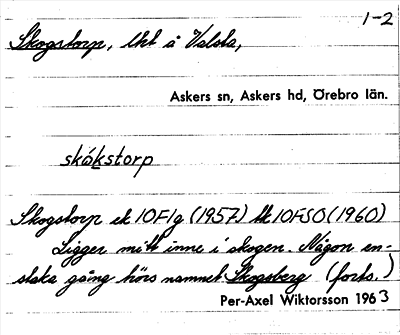 1-2
Skogstorp, lht å Valsta,
Askers sn, Askers hd, Örebro län.
skókstorp
Skogstorp ek 10F1g (1957) tk 10FSO (1960)
Ligger mitt inne i skogen. Någon en-
staka gång hörs namnet Skogsberg (forts.)
Per-Axel Wiktorsson 1963